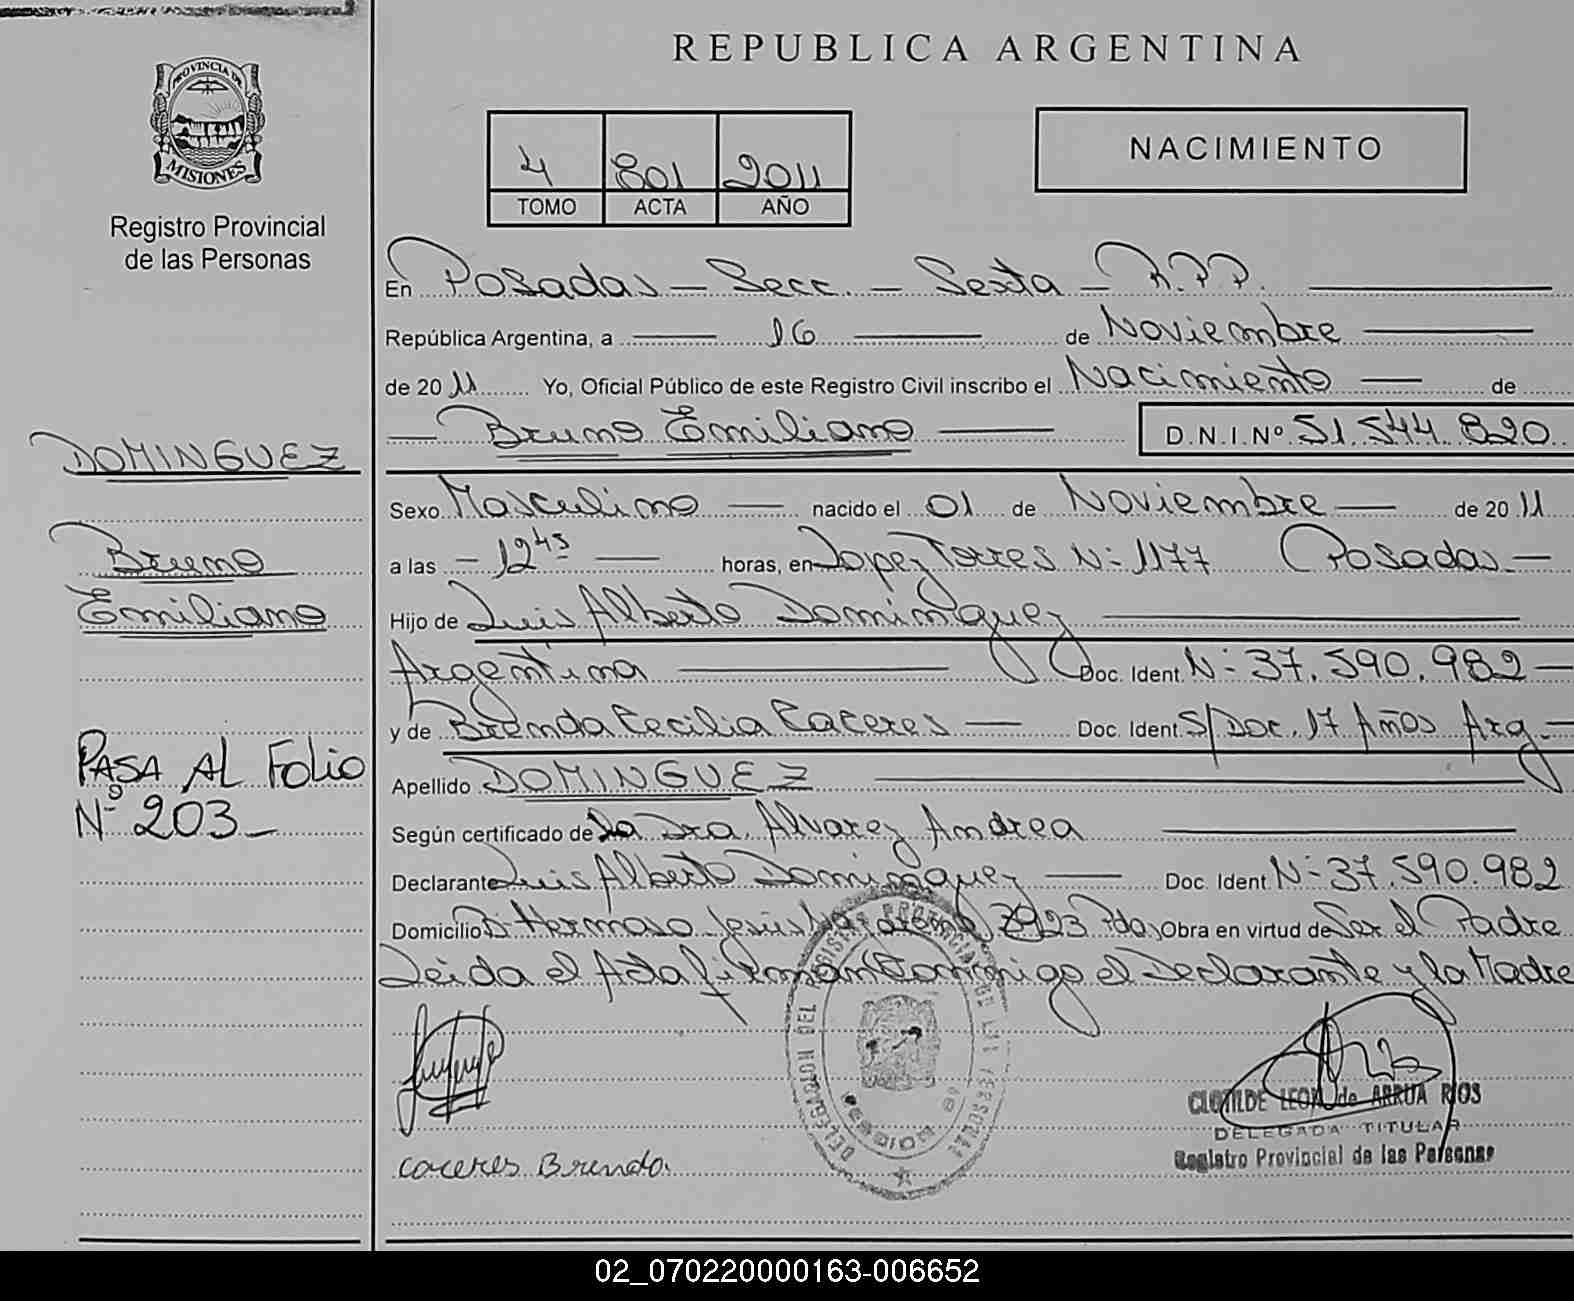 REPUBLICA ARGENTINA
PROVINCIA DE
MISIONES
Registro Provincial
de las Personas
4 801 2011
TOMO ACTA AÑO
NACIMIENTO
En Posadas - Secc. - Sexta - R.P.P.
República Argentina, a 16 de Noviembre
de 20 11 Yo, Oficial Público de este Registro Civil inscribo el Nacimiento de
Bruno Emiliano D.N.I.Nº 51.544.820
DOMINGUEZ
Bruno
Emiliano
PASA AL FOLIO
Nº 203_
Sexo Masculino nacido el 01 de Noviembre de 20 11
a las - 12 45 horas, en Lopez Torres N: 1177 Posadas -
Hijo de Luis Alberto Dominguez
Argentina Doc. Ident. N: 37.590.982
y de Brenda Cecilia Caceres Doc. Ident. S/Doc. 17 Años Arg.
Apellido DOMINGUEZ
Según certificado de la Dra. Alvarez Andrea
Declarante Luis Alberto Dominguez Doc. Ident N: 37.590.982
Domicilio Bº Hermoso Jesús Pdas Obra en virtud de Ser el Padre
Leida el Acta firman conmigo el Declarante y la Madre
DELEGACION DEL REGISTRO PROVINCIAL DE LAS PERSONAS
POSADAS
MISIONES
Caceres Brenda.
CLOTILDE LEON de ARRUA RIOS
DELEGADA TITULAR
Registro Provincial de las Personas
02_070220000163-006652